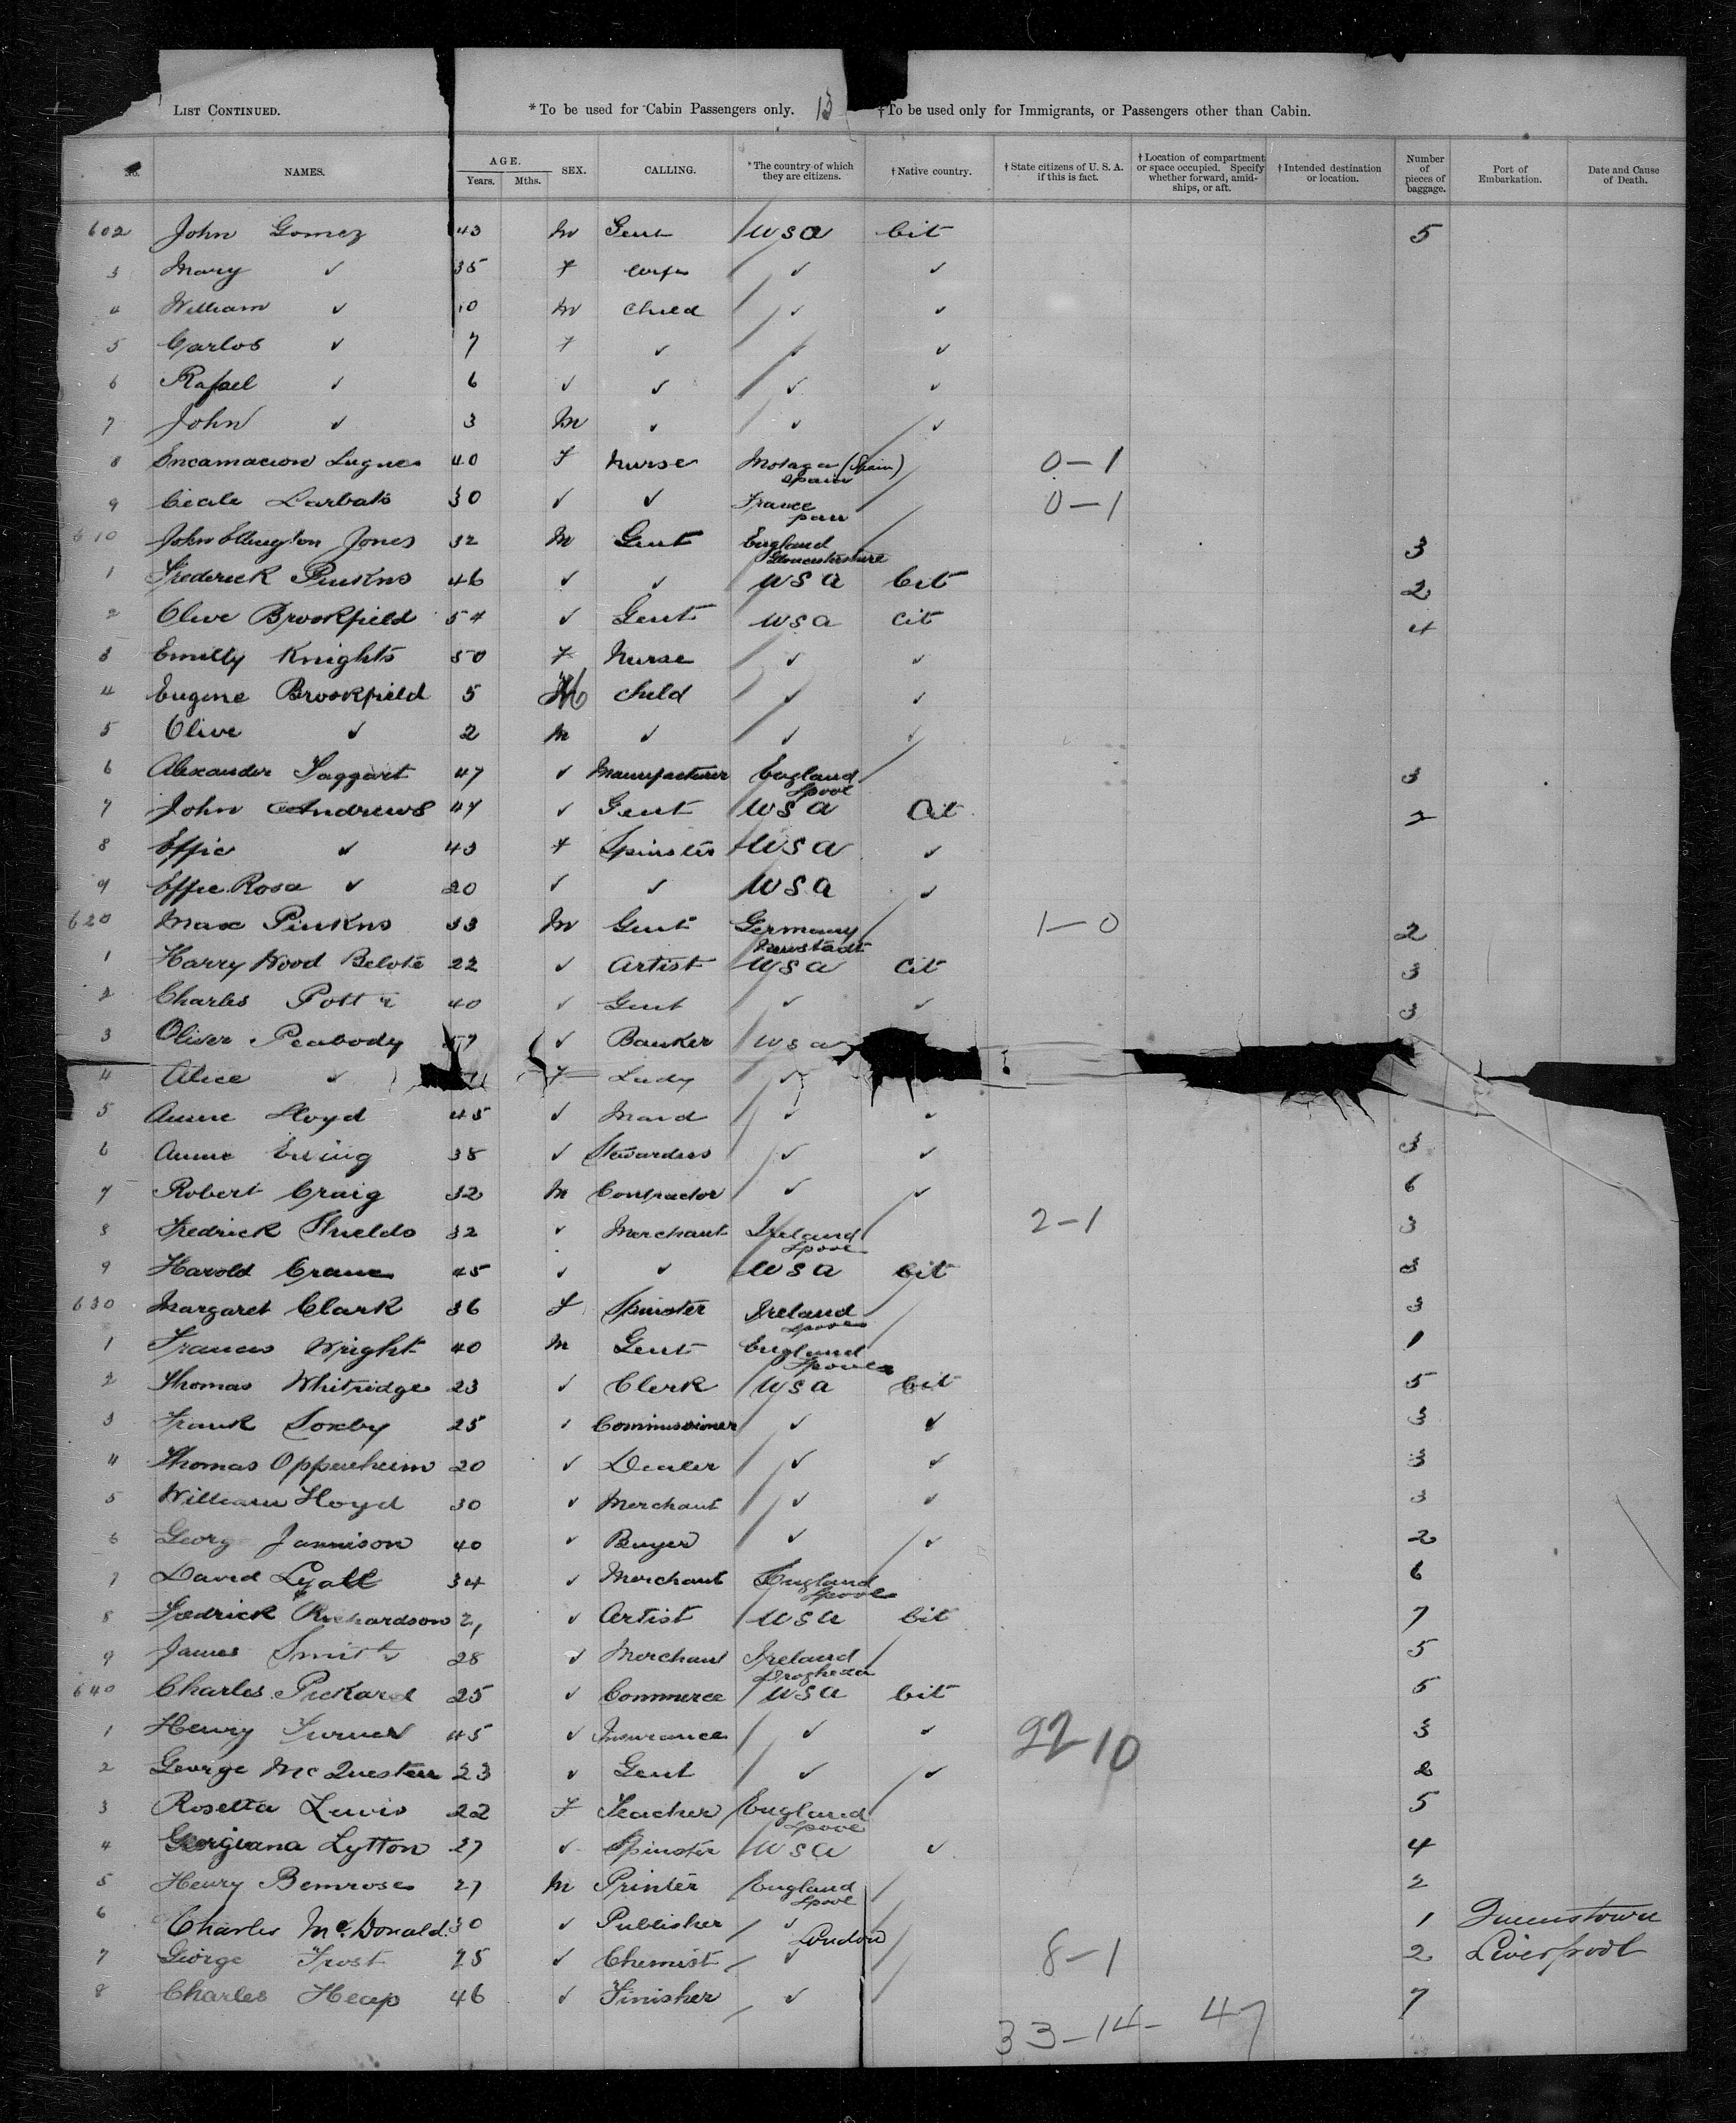 LIST CONTINUED. *To be used for Cabin Passengers only. 13 †To be used only for Immigrants, or Passengers other than Cabin.
No. NAMES. AGE. Years. Mths. SEX. CALLING. *The country of which they are citizens. †Native country. †State citizens of U. S. A. if this is fact. †Location of compartment or space occupied. Specify whether forward, amidships, or aft. †Intended destination or location. Number of pieces of baggage. Port of Embarkation. Date and Cause of Death.
602 John Gomez 43 M Gent USA Cit 5
3 Mary ✓ 35 F Wife ✓ ✓
4 William ✓ 10 M Child ✓ ✓
5 Carlos ✓ 7 F ✓ ✓ ✓
6 Rafael ✓ 6 ✓ ✓ ✓ ✓
7 John ✓ 3 M ✓ ✓ ✓
8 Encarnacion 40 F Nurse (Spain) 0-1
Spain
9 30 ✓ ✓ France 0-1
610 John Ellington Jones 32 M Gent England 3
Gloucestershire
1 Frederick 46 ✓ ✓ USA Cit 2
2 Olive Brookfield 54 ✓ Gent USA Cit 4
3 Emilly Knights 50 F Nurse ✓ ✓
4 Eugene Brookfield 5 M Child ✓ ✓
5 Olive ✓ 2 M ✓ ✓ ✓
6 Alexander Taggart 47 ✓ Manufacturer England 3
Lpool
7 John Andrews 47 ✓ Gent USA Cit 2
8 Effie ✓ 43 F Spinster USA ✓
9 Effie Rosa ✓ 20 ✓ ✓ USA ✓
620 Max 33 M Gent Germany 1-0 2
Neustadt
1 Harry Wood Belote 22 ✓ Artist USA Cit 3
2 Charles Potter 40 ✓ Gent ✓ ✓ 3
3 Oliver Peabody ✓ Banker USA
4 Alice ✓ F Lady ✓
5 Annie Lloyd 45 ✓ Maid ✓ ✓
6 Annie Ewing 38 ✓ Stewardess ✓ ✓ 3
7 Robert Craig 32 M Contractor ✓ ✓ 6
8 Fredrick Shields 32 ✓ Merchant Ireland 2-1 3
Lpool
9 Harold Crane 45 ✓ ✓ USA Cit 3
630 Margaret Clark 36 F Spinster Ireland 3
Lpool
1 Francis Wright 40 M Gent England 1
Lpool
2 Thomas Whitridge 23 ✓ Clerk USA Cit 5
3 Frank Soxby 25 ✓ Commissioner ✓ ✓ 3
4 Thomas Oppenheim 20 ✓ Dealer ✓ ✓ 3
5 William Lloyd 30 ✓ Merchant ✓ ✓ 3
6 George Jannison 40 ✓ Buyer ✓ ✓ 2
7 David Lyall 34 ✓ Merchant England 6
Lpool
8 Fredrick Richardson 21 ✓ Artist USA Cit 7
9 James Smith 28 ✓ Merchant Ireland 5
Drogheda
640 Charles Pickard 25 ✓ Commerce USA Cit 5
1 Henry Turner 45 ✓ Insurance ✓ ✓ 22 10 3
2 George McQuesten 23 ✓ Gent ✓ ✓ 2
3 Rosetta Lewis 22 F Teacher England 5
Lpool
4 Georgiana Lytton 27 ✓ Spinster USA ✓ 4
5 Henry Bemrose 27 M Printer England 2
Lpool
6 Charles McDonald 30 ✓ Publisher ✓ 1 Queenstown
London
7 George Frost 75 ✓ Chemist ✓ 8-1 2 Liverpool
8 Charles Heap 46 ✓ Finisher ✓ 7
33-14-47